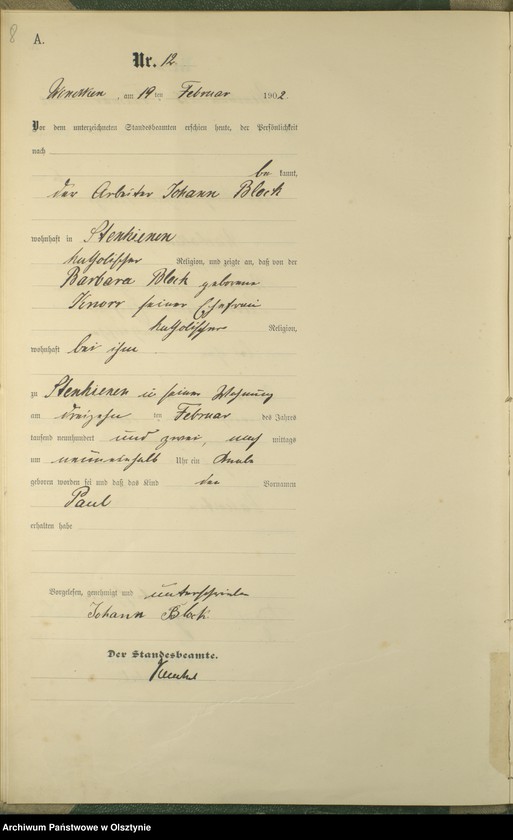 8
A.
Nr. 12
am 19ten Februar 1902.
Vor dem unterzeichneten Standesbeamten erschien heute, der Persönlichkeit
nach
be kannt,
der Arbeiter Johann Block
wohnhaft in Stenkienen
katholischer Religion, und zeigte an, daß von der
Barbara Block geborene
Knorr seiner Ehefrau
katholischer Religion,
wohnhaft bei ihm
zu Stenkienen in seiner Wohnung
am dreizehn ten Februar des Jahres
tausend neunhundert und zwei, nach mittags
um neuneinhalb Uhr ein Knabe
geboren worden sei und daß das Kind den Vornamen
Paul
erhalten habe
Vorgelesen, genehmigt und unterschrieben
Johann Block
Der Standesbeamte.
Archiwum Państwowe w Olsztynie